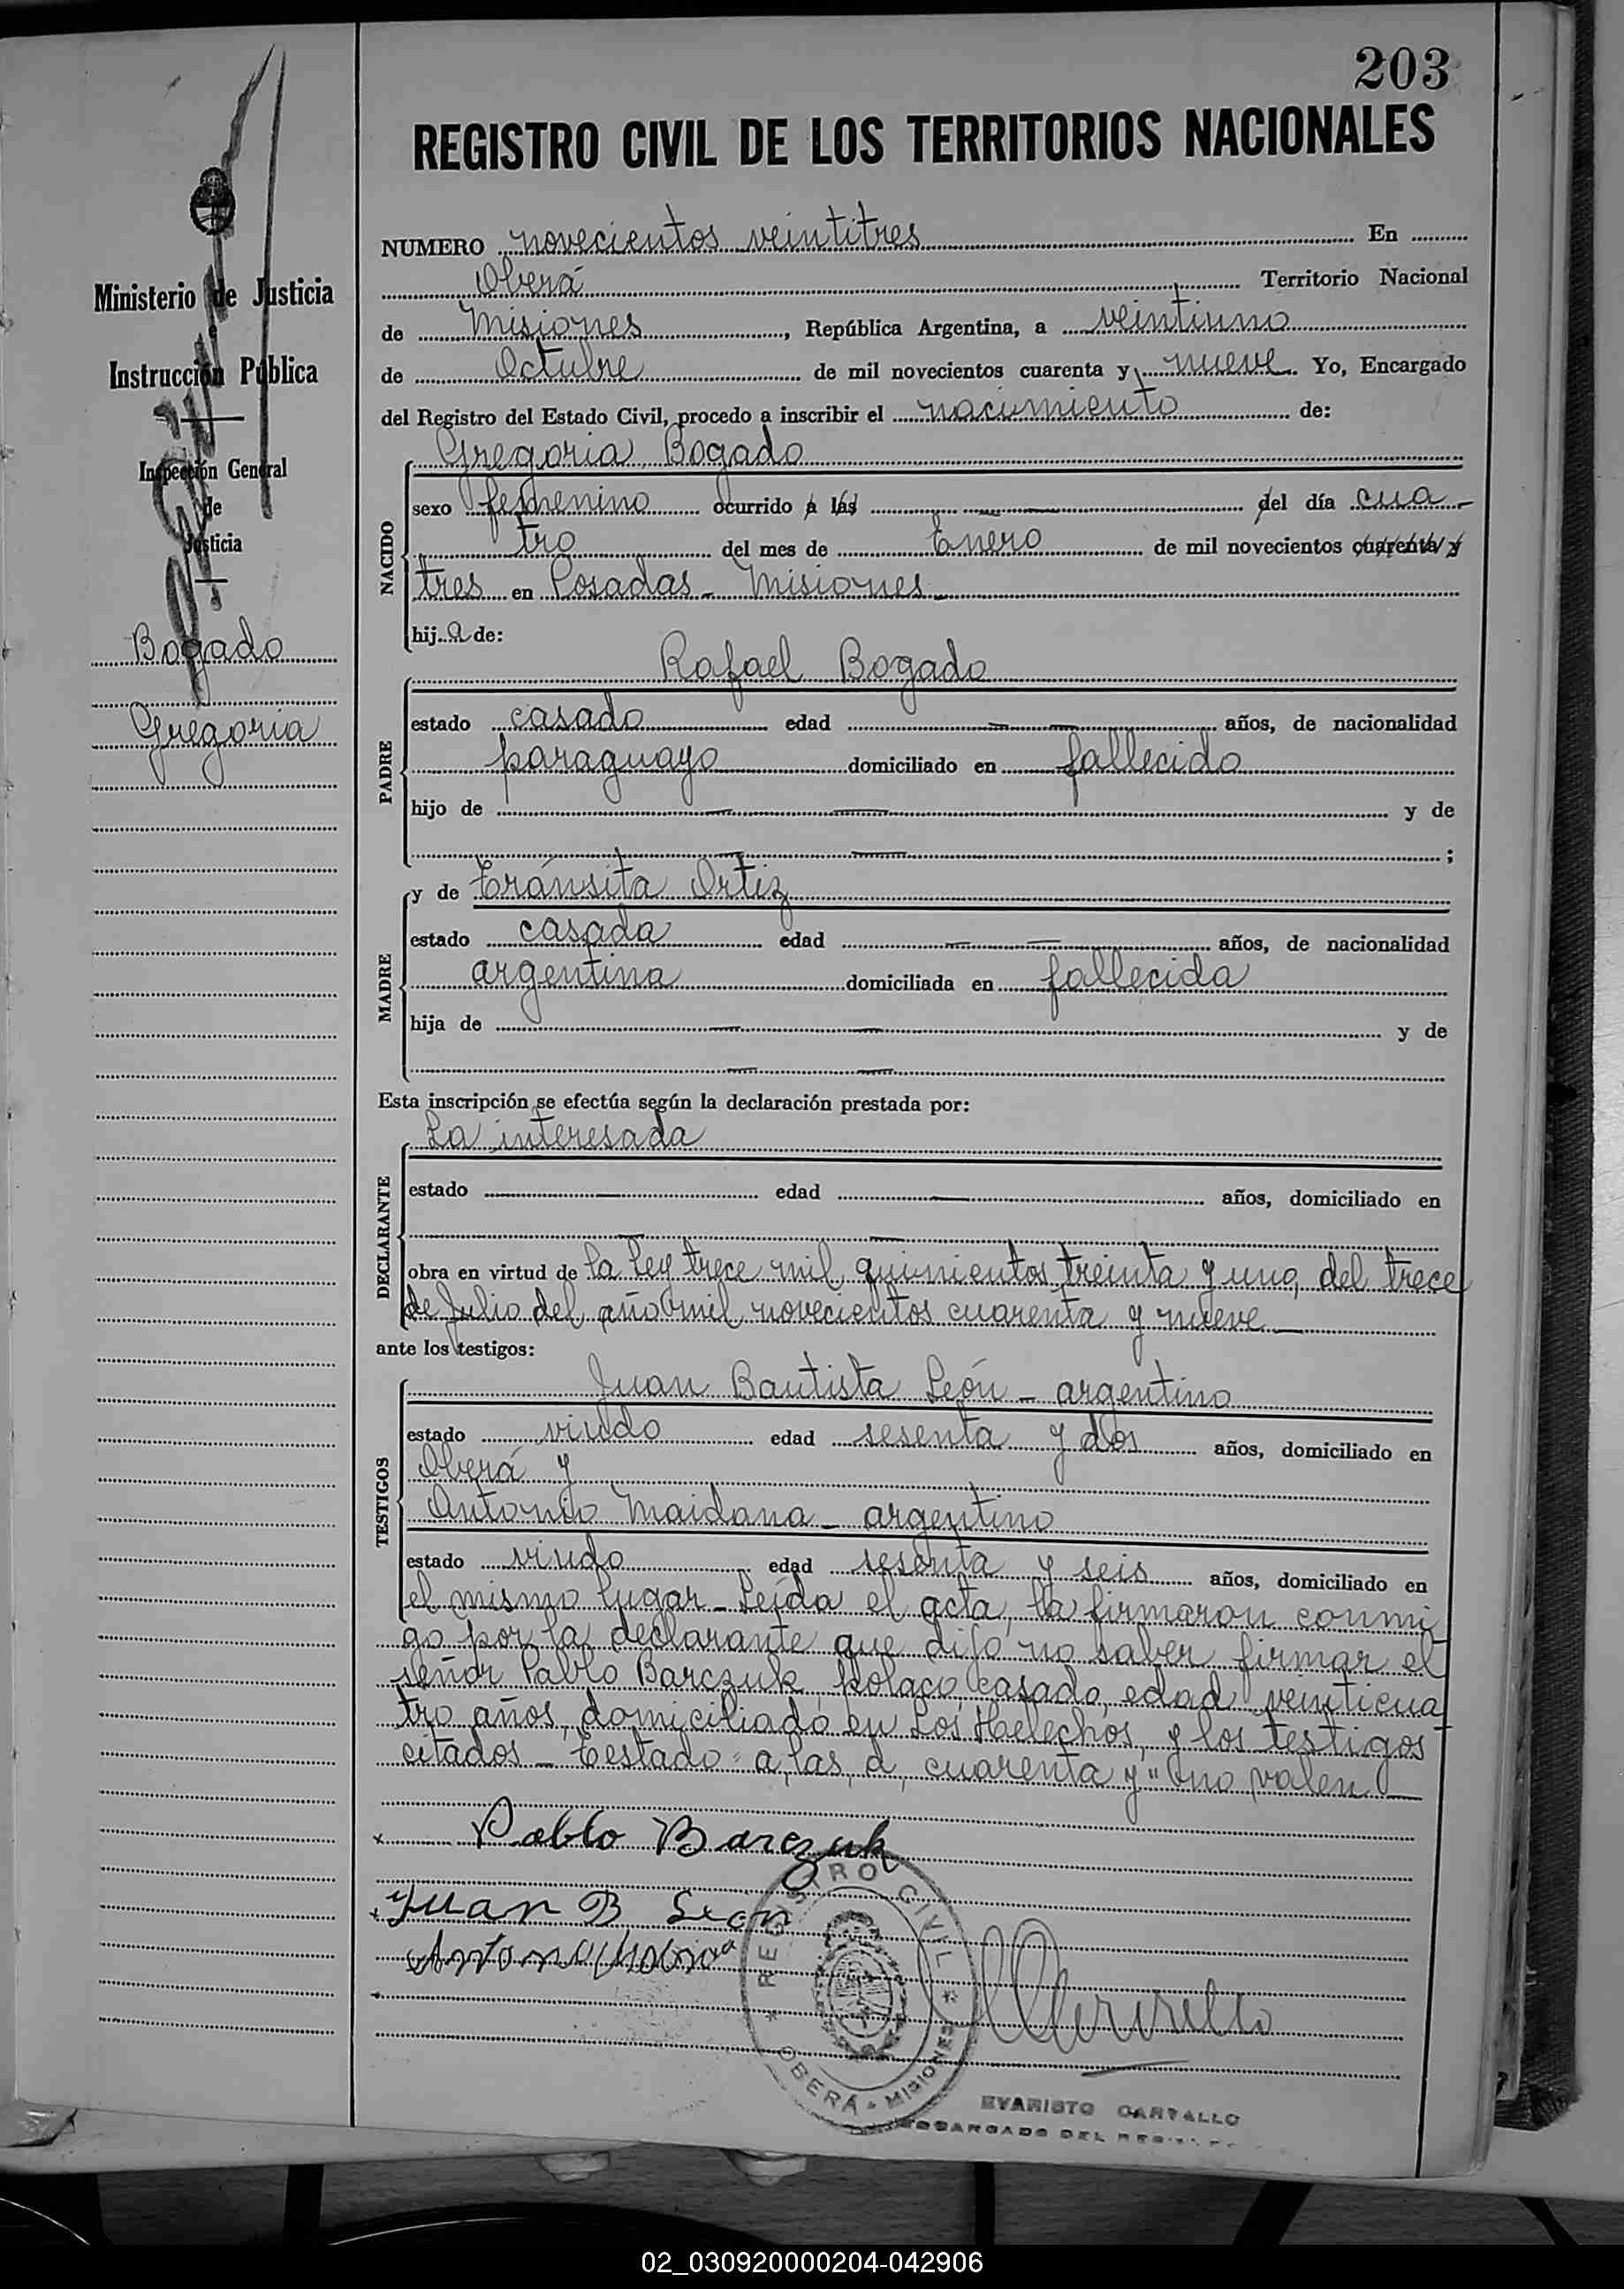 203
REGISTRO CIVIL DE LOS TERRITORIOS NACIONALES
Ministerio de Justicia
e
Instrucción Pública
Inspección General
de
Justicia
Bogado
Gregoria
NUMERO novecientos veintitres En
Oberá Territorio Nacional
de Misiones, República Argentina, a veintiuno
de Octubre de mil novecientos cuarenta y nueve Yo, Encargado
del Registro del Estado Civil, procedo a inscribir el nacimiento de:
NACIDO
Gregoria Bogado
sexo femenino ocurrido a las — — del día cua-
tro del mes de Enero de mil novecientos cuarenta y
tres en Posadas - Misiones -
hija de:
PADRE
Rafael Bogado
estado casado edad — — años, de nacionalidad
paraguayo domiciliado en fallecido
hijo de — — y de
— — ;
MADRE
y de Tránsita Ortiz
estado casada edad — — años, de nacionalidad
argentina domiciliada en fallecida
hija de — — y de
— —
Esta inscripción se efectúa según la declaración prestada por:
DECLARANTE
La interesada
estado — edad — años, domiciliado en
— —
obra en virtud de la Ley trece mil quinientos treinta y uno, del trece
de Julio del año mil novecientos cuarenta y nueve —
ante los testigos:
TESTIGOS
Juan Bautista León - argentino
estado viudo edad sesenta y dos años, domiciliado en
Oberá y
Antonio Maidana - argentino
estado viudo edad sesenta y seis años, domiciliado en
el mismo lugar - Leída el acta, la firmaron conmi-
go por la declarante que dijo no saber firmar el
señor Pablo Barczuk, polaco, casado, edad veinticua-
tro años, domiciliado en Los Helechos, y los testigos
citados - Testado: a, las, d, cuarenta y" no valen —
x Pablo Barczuk
x Juan B León
REGISTRO CIVIL
* OBERÁ - MISIONES *
EVARISTO CARVALLO
ENCARGADO DEL
02_030920000204-042906